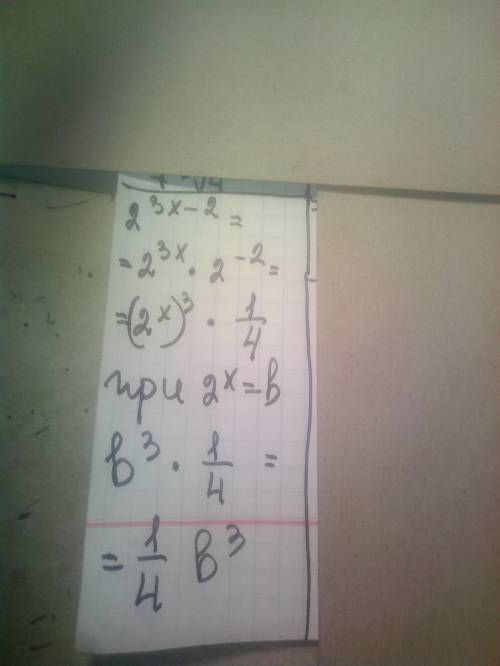 2^{3x-2} =
= 2^{3x} · 2^{-2} =
= (2^x)^3 · 1/4
при 2^x = b
b^3 · 1/4 =
= 1/4 b^3